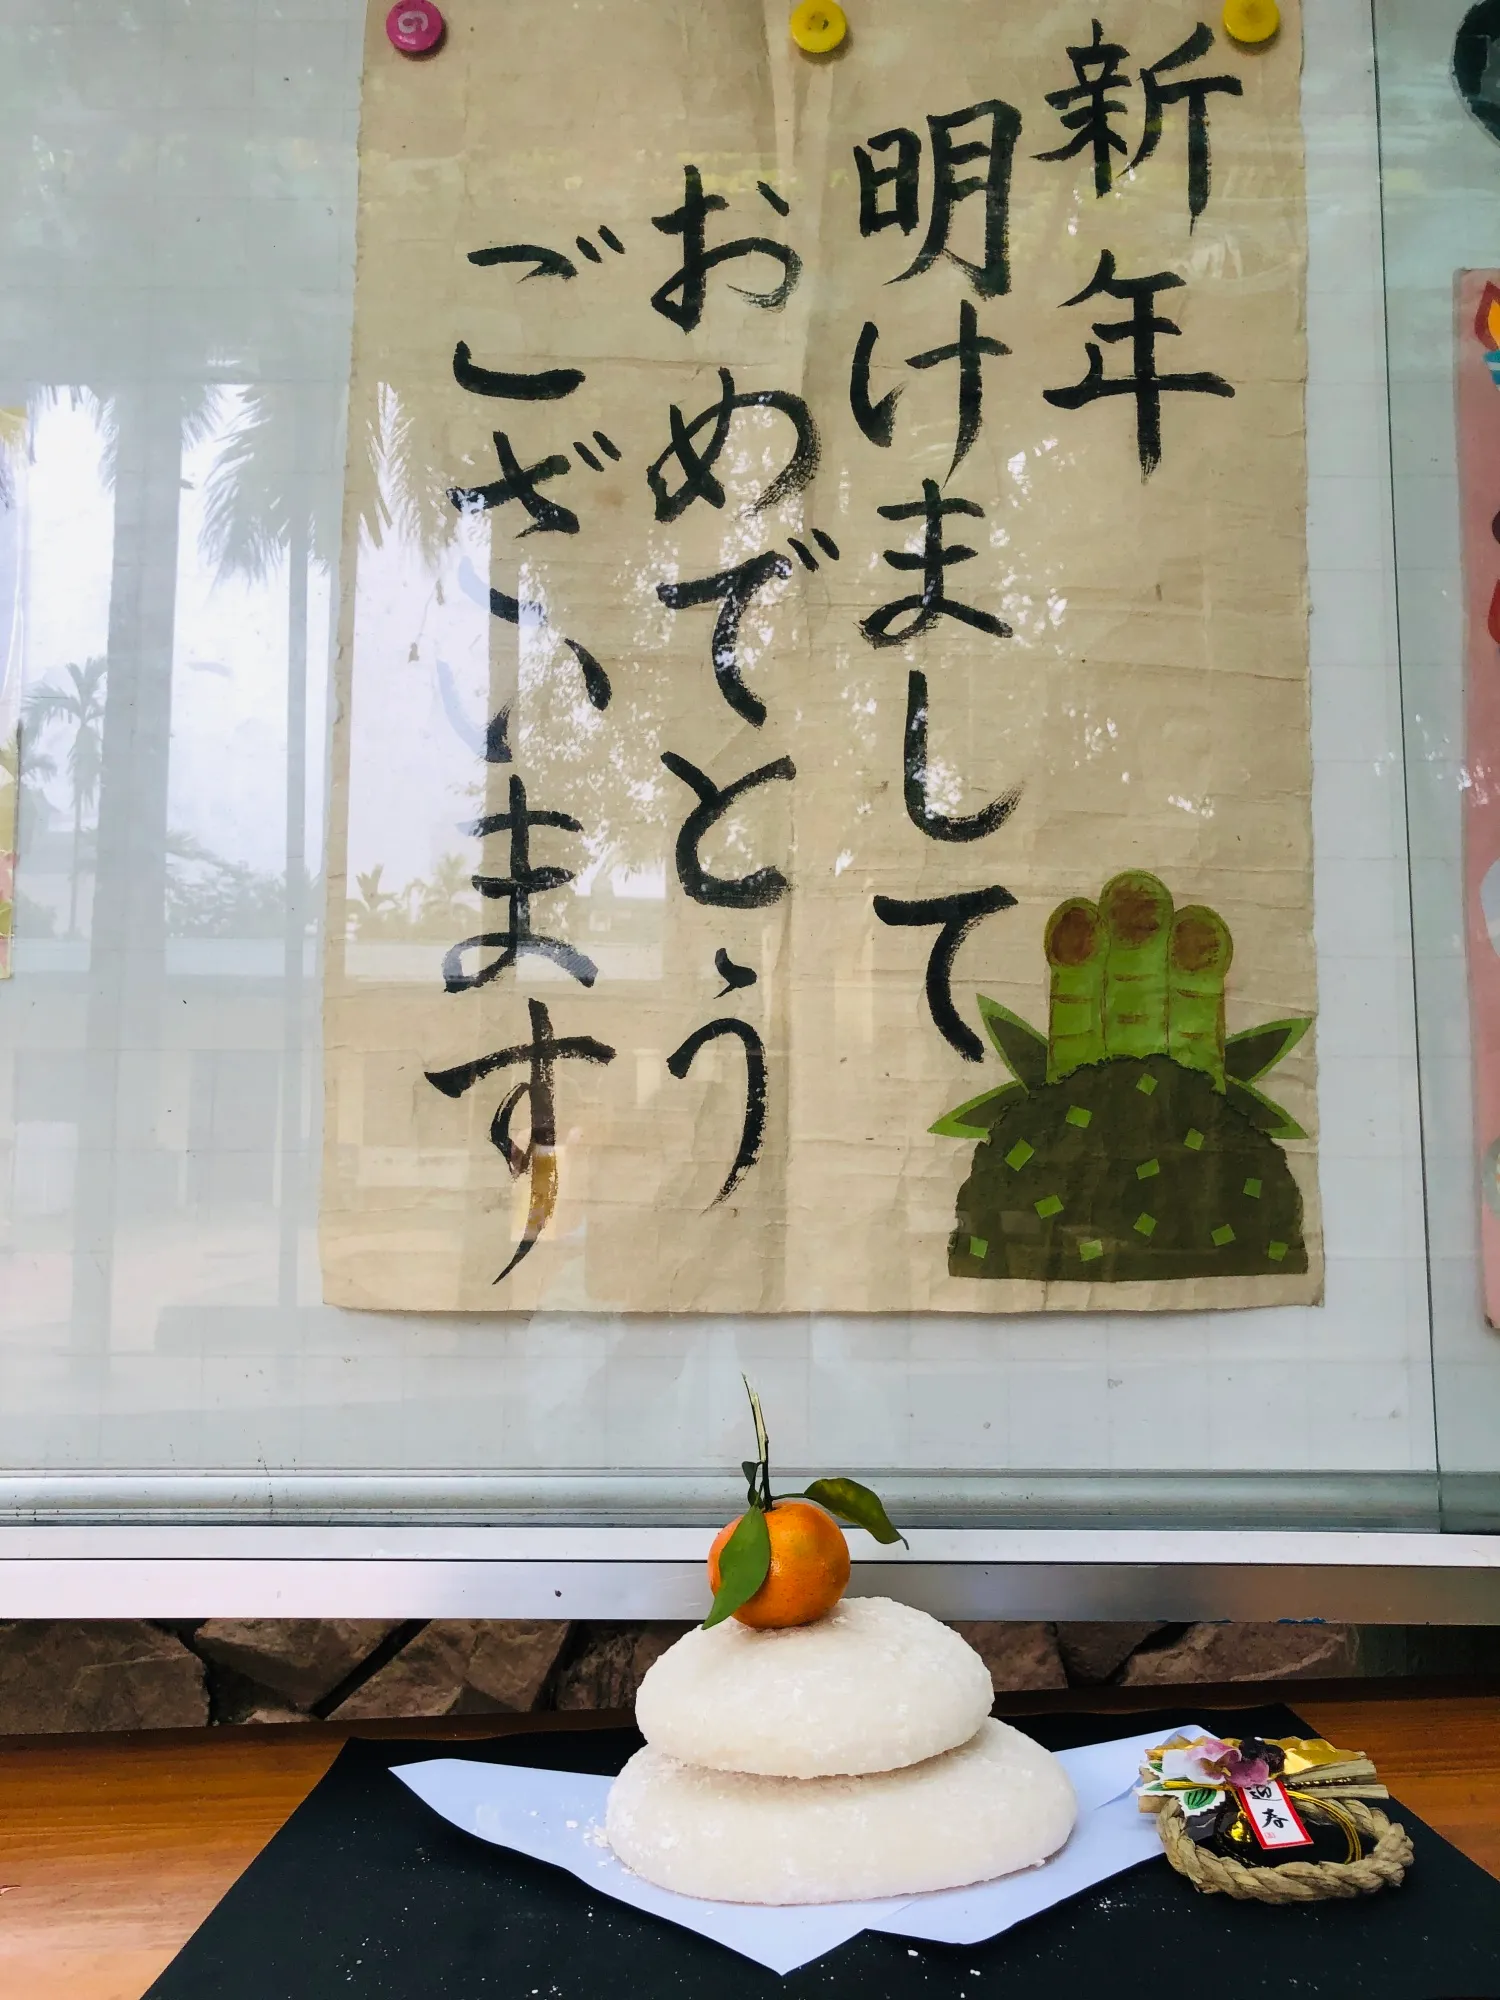 新年
明けまして
おめでとう
ございます
迎春